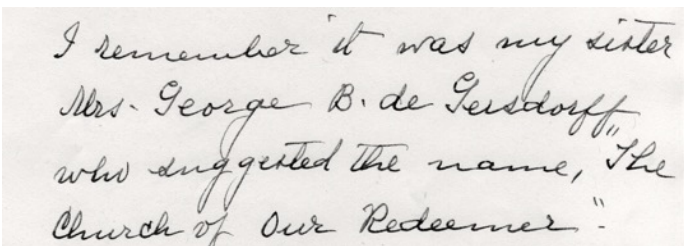 I remember it was my sister
Mrs. George B. de Gersdorff
who suggested the name, "The
Church of Our Redeemer".